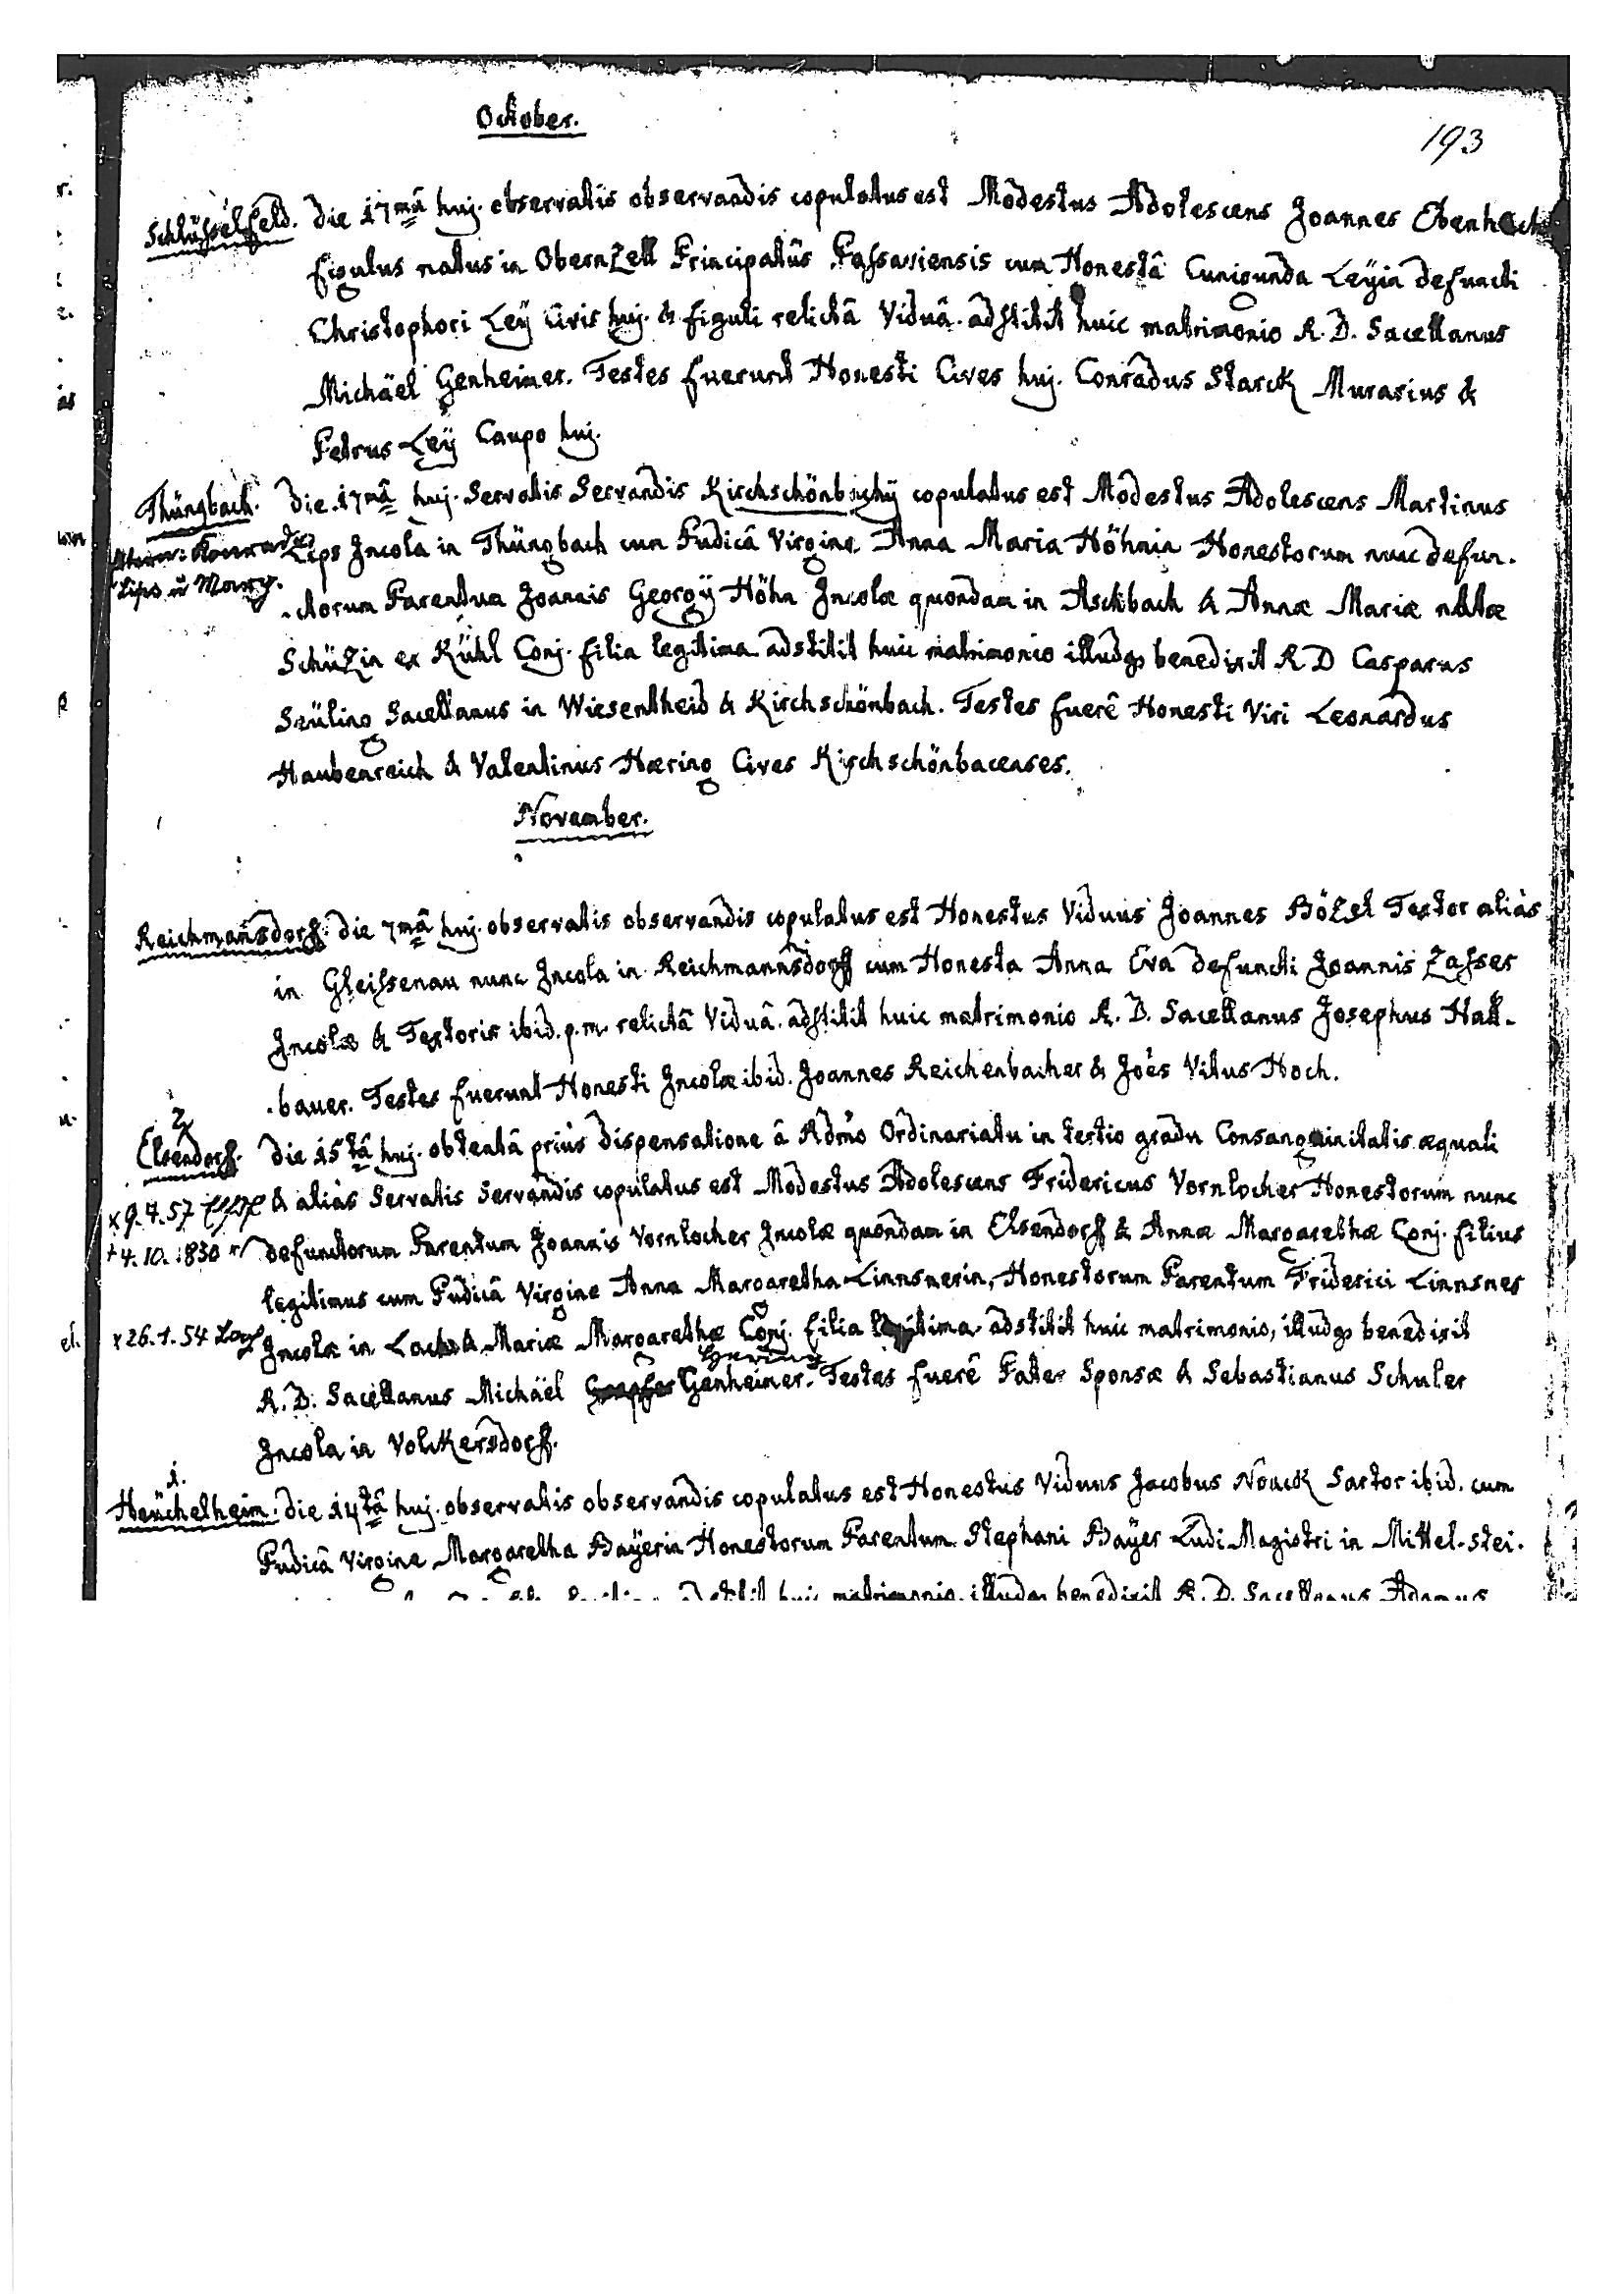 October.
193
Schlüsselfeld. Die 17mâ huj. observatis observandis copulatus est Modestus Adolescens Joannes Ebenhöch
figulus natus in Obernzell Principatûs Passaviensis cum Honestâ Cunigunda Leÿin defuncti
Christophori Leÿ Civis huj. & figuli relictâ Viduâ. adstitit huic matrimonio R. D. Sacellanus
Michäel Genheimer. Testes fuerunt Honesti Cives huj. Conradus Starck Murarius &
Petrus Leÿ Caupo huj.
Thüngbach. Die 17mâ huj. Servatis Servandis Kirchschönbachÿ copulatus est Modestus Adolescens Martinus
Lips Incola in Thüngbach cum Pudicâ Virgine Anna Maria Höhnin Honestorum nunc defun-
Lips u Marg.
-ctorum Parentum Joannis Georgÿ Höhn Incolæ quondam in Aschbach & Annæ Mariæ natæ
Schüzin ex Kühl Conj. filia legitima. adstitit huic matrimonio illudq benedixit R D Casparus
Szüling Sacellanus in Wiesentheid & Kirchschönbach. Testes fuerê Honesti Viri Leonardus
Haubenreich & Valentinus Hæring Cives Kirchschönbacenses.
November.
Reichmañsdorf. Die 7mâ huj. observatis observandis copulatus est Honestus Viduus Joannes Bözel Textor aliàs
in Gleissenau nunc Incola in Reichmannsdorff cum Honesta Anna Eva defuncti Joannis Zasser
Incolæ & Textoris ibid. p.m. relictâ Viduâ. adstitit huic matrimonio R. D. Sacellanus Josephus Hall-
-bauer. Testes fuerunt Honesti Incolæ ibid. Joannes Reichenbacher & Joës Vitus Hoch.
2
Elsendorf. Die 15tâ huj. obtentâ priùs dispensatione â Rdmo Ordinariatu in tertio gradu Consanguinitatis æquali
x 9.7.57 & aliàs Servatis Servandis copulatus est Modestus Adolescens Fridericus Vornlocher Honestorum nunc
+ 4.10.1830 defunctorum Parentum Joannis Vornlocher Incolæ quondam in Elsendorff & Annæ Margarethæ Conj. filius
legitimus cum Pudicâ Virgine Anna Margaretha Linnsnerin, Honestorum Parentum Friderici Linnsner
x 26.1.54 Incolæ in Lach & Mariæ Margarethæ Conj. filia legitima. adstitit huic matrimonio, illudq benedixit
R. D. Sacellanus Michäel Genheimer. Testes fuerê Pater Sponsæ & Sebastianus Schuler
Incola in Volckersdorf.
1.
Heüchelheim. Die 14tâ huj. observatis observandis copulatus est Honestus Viduus Jacobus Noack Sartor ibid. cum
Pudicâ Virgine Margaretha Baÿerin Honestorum Parentum Stephani Baÿer Ludi Magistri in Mittel-stei-
adstitit huic matrimonio, illudq benedixit R. D. Sacellanus Adamus